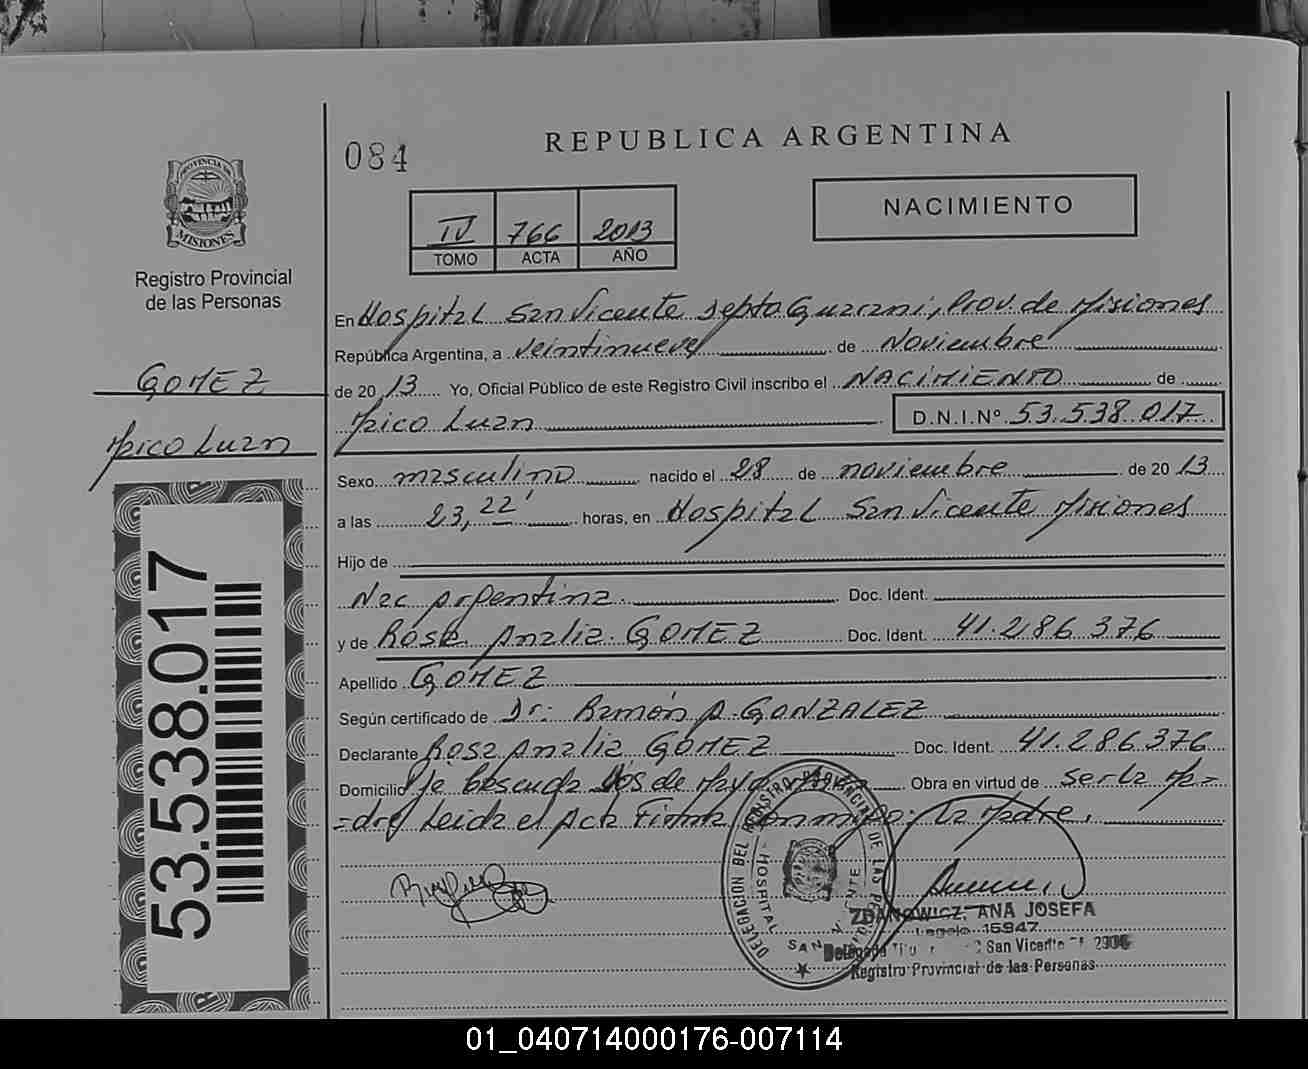 084
REPUBLICA ARGENTINA
PROVINCIA DE
MISIONES
Registro Provincial
de las Personas
IV 766 2013
TOMO ACTA AÑO
NACIMIENTO
GOMEZ
Mico Luan
53.538.017
En Hospital San Vicente Depto Guarani, Prov. de Misiones
República Argentina, a veintinueve de Noviembre
de 2013 Yo, Oficial Público de este Registro Civil inscribo el NACIMIENTO de
Mico Luan D.N.I.Nº 53.538.017
Sexo masculino nacido el 28 de noviembre de 2013
a las 23,22' horas, en Hospital San Vicente Misiones
Hijo de
Nac Argentina. Doc. Ident.
y de Rosa Analia GOMEZ Doc. Ident. 41.286.376
Apellido GOMEZ
Según certificado de Dr: Ramón A. GONZALEZ
Declarante Rosa Analia GOMEZ Doc. Ident. 41.286.376
Domicilio Dos de Mayo Obra en virtud de ser la Ma=
=dre Leida el Acta Firma conmigo: la Madre.
DELEGACION DEL REGISTRO PROVINCIAL DE LAS
HOSPITAL SAN VICENTE
ZDANOWICZ, ANA JOSEFA
Legajo 15947
San Vicente
Registro Provincial de las Personas
01_040714000176-007114